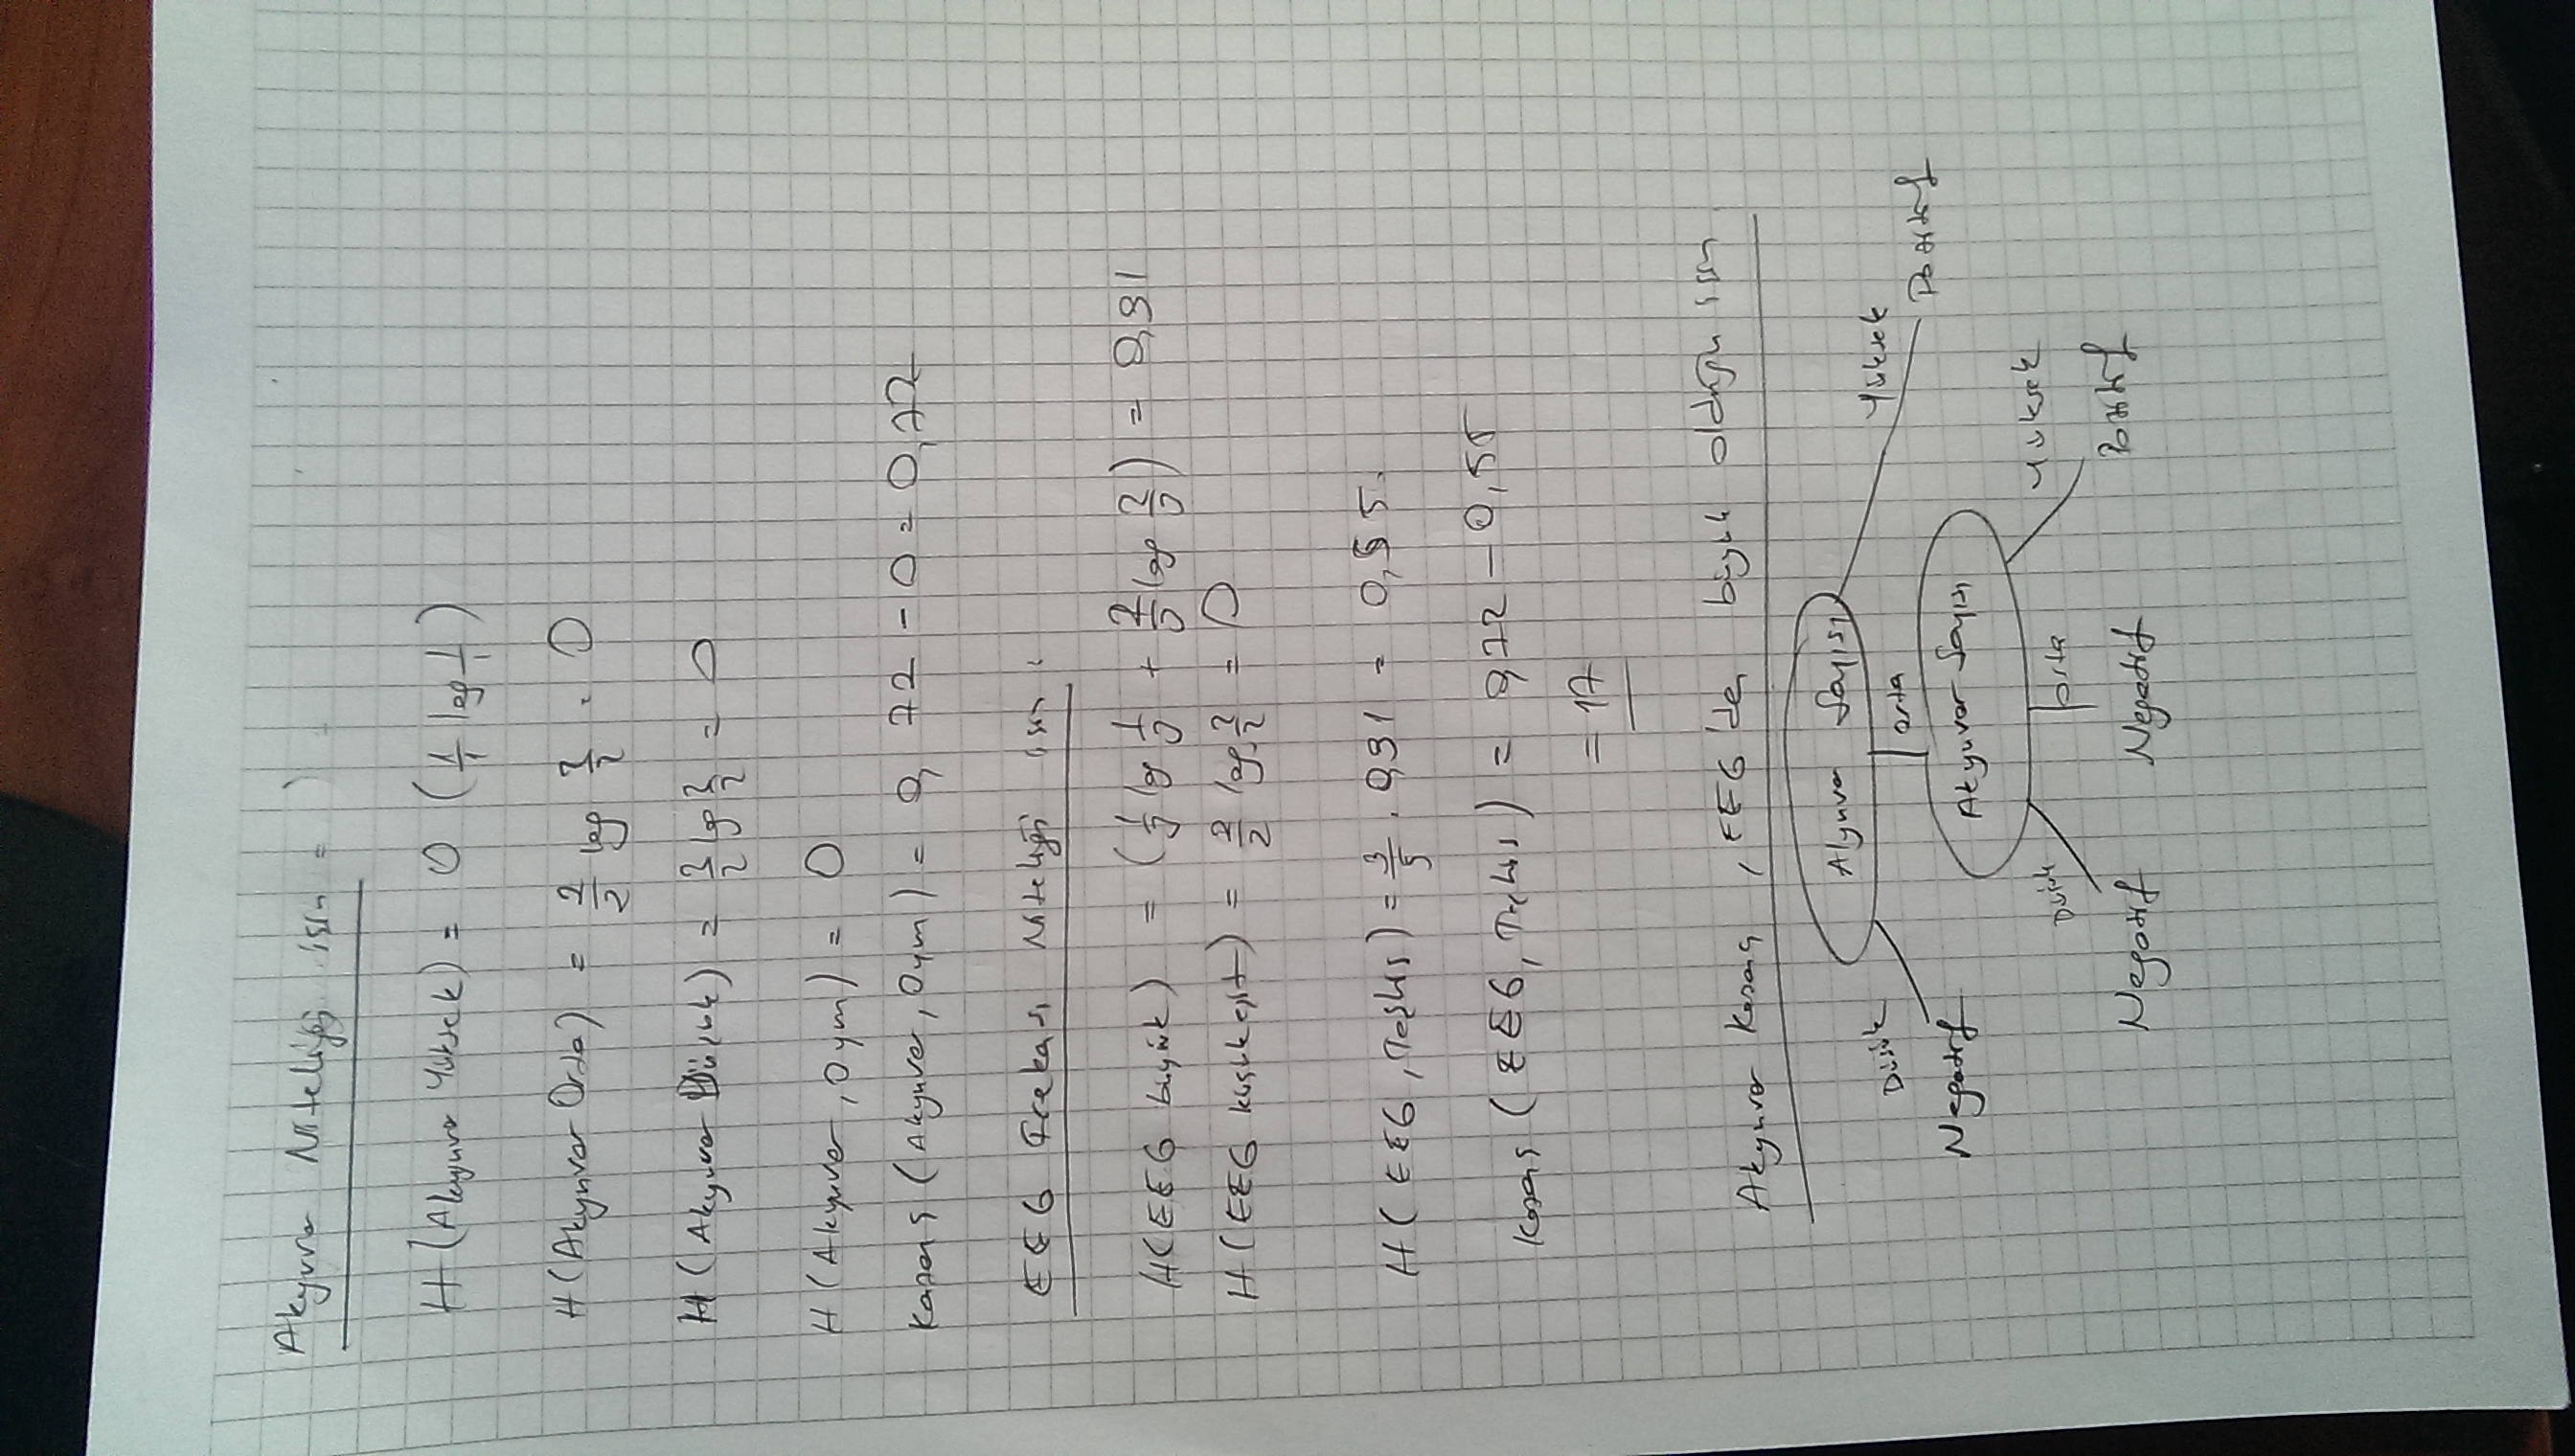 Akyuvar Niteliği için =
H (Akyuvar Yüksek) = 0 (1/1 log 1/1)
H (Akyuvar Orta) = 2/2 log 2/2 = 0
H (Akyuvar Düşük) = 2/2 log 2/2 = 0
H (Akyuvar, Oyun) = 0
Kazanç (Akyuvar, Oyun) = 0,72 - 0 = 0,72
EEG Frekans Niteliği için
H (EEG büyük) = (1/3 log 1/3 + 2/3 log 2/3) = 0,91
H (EEG küçük eşit) = 2/2 log 2/2 = 0
H (EEG, Teşhis) = 3/5 . 0,91 = 0,55.
Kazanç (EEG, Teşhis) = 0,72 - 0,55
= 17
Akyuvar Kazanç, EEG'den büyük olduğu için
Akyuvar Sayısı
Düşük orta Yüksek
Negatif Akyuvar Sayısı Pozitif
Düşük orta Yüksek
Negatif Negatif Pozitif